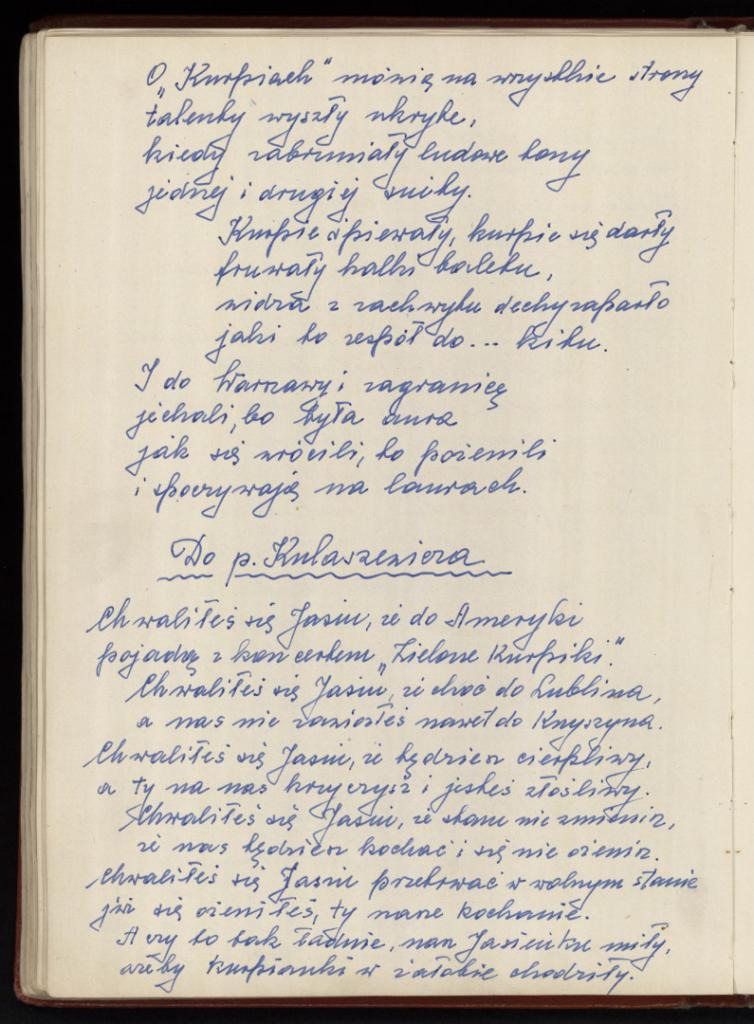 O „Kurpiach" mówią na wszystkie strony
talenty wyszły ukryte,
kiedy zabrzmiały ludowe tony
jednej i drugiej suity.
Kurpie śpiewały, kurpie się darły
fruwały halki baletu,
widza z zachwytu dechy zaparło
jaki to zespół do... kitu.
I do Warszawy i zagranicę
jechali, bo była aura
jak się wrócili, to pożenili
i spoczywają na laurach.
Do p. Kulaszewicza
Chwaliłeś się Jasiu, że do Ameryki
pojadą z koncertem „Zielone Kurpiki".
Chwaliłeś się Jasiu, że choć do Lublina,
a nas nie zawiozłeś nawet do Knyszyna.
Chwaliłeś się Jasiu, że będziesz cierpliwy,
a ty na nas krzyczysz i jesteś złośliwy.
Chwaliłeś się Jasiu, że stanu nie zmienisz,
że nas będziesz kochać i się nie ożenisz.
Chwaliłeś się Jasiu przetrwać w wolnym stanie
już się ożeniłeś, ty nasze kochanie.
A czy to tak ładnie, nasz Jasieńku miły,
ażeby kurpianki w żałobie chodziły.